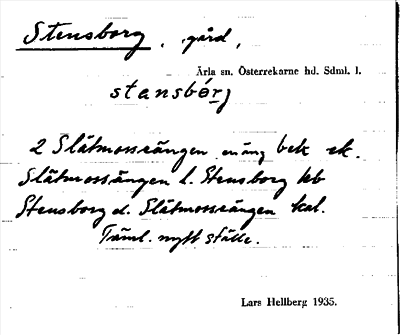 Stensborg, gård,
Ärla sn. Österrekarne hd. Sdml. l.
stansbórj
2 Slåtmossängen en äng bek ek.
Slåtmossängen l. Stensborg hb
Stensborg d. Slåtmossängen kal.
Täml. nytt ställe.
Lars Hellberg 1935.